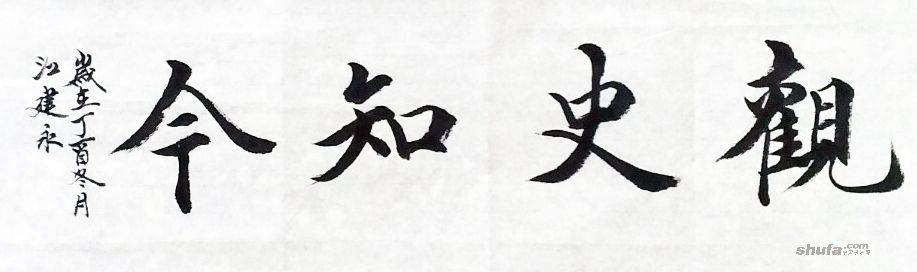 觀史知今
歲在丁酉冬月
江建永
shufa.com